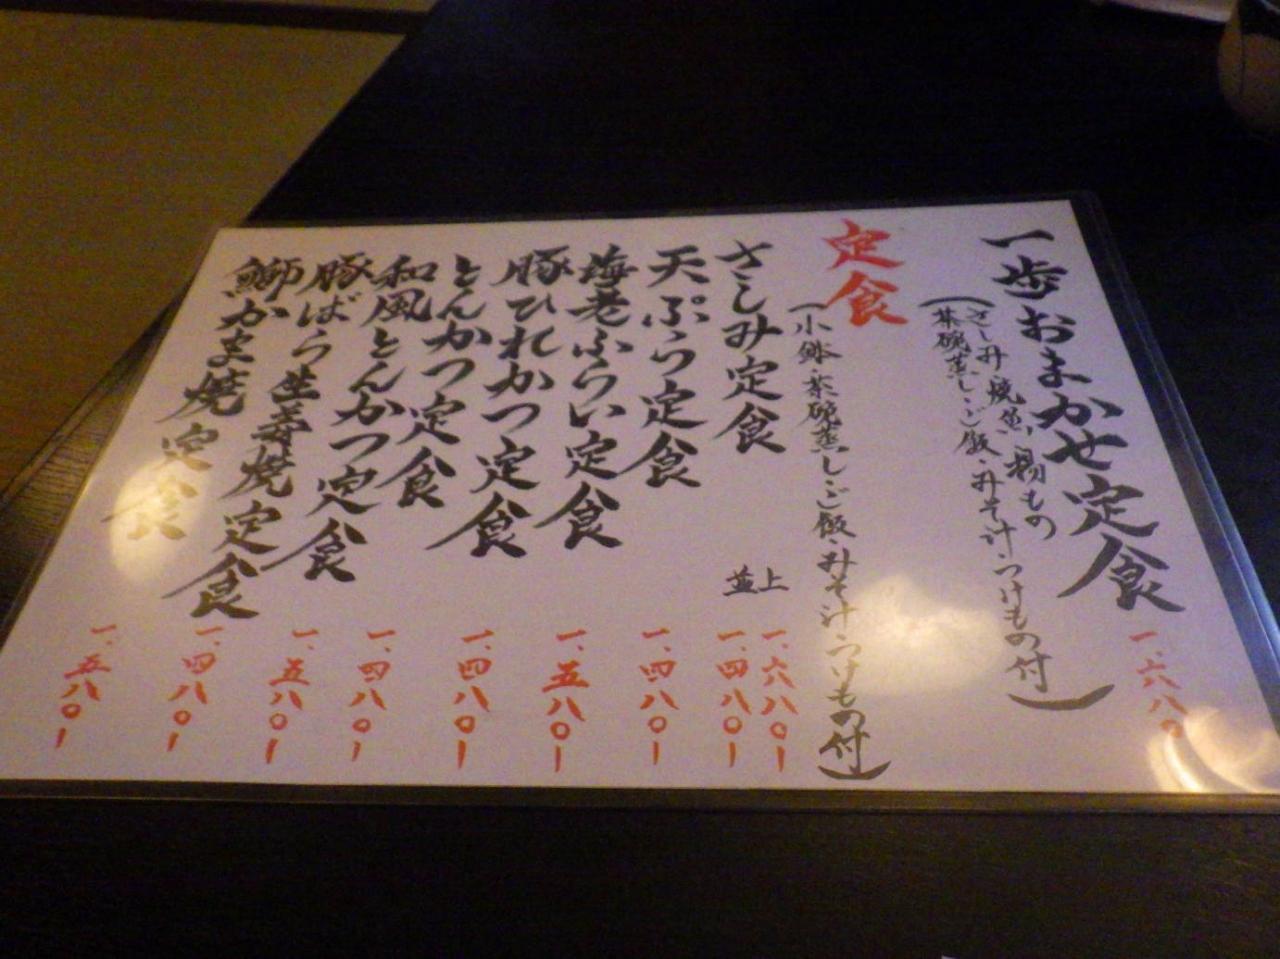 一歩おまかせ定食 一、六八〇
(さしみ 焼魚 揚もの
茶碗蒸し ご飯 みそ汁 つけもの付)
定食
(小鉢 茶碗蒸し ご飯 みそ汁 つけもの付)
さしみ定食
上 一、六八〇ー
並 一、四八〇ー
天ぷら定食 一、四八〇ー
海老ふらい定食 一、五八〇ー
豚ひれかつ定食 一、四八〇ー
とんかつ定食 一、四八〇ー
和風とんかつ定食 一、五八〇ー
豚ばら生姜焼定食 一、四八〇ー
鰤かま焼定食 一、五八〇ー